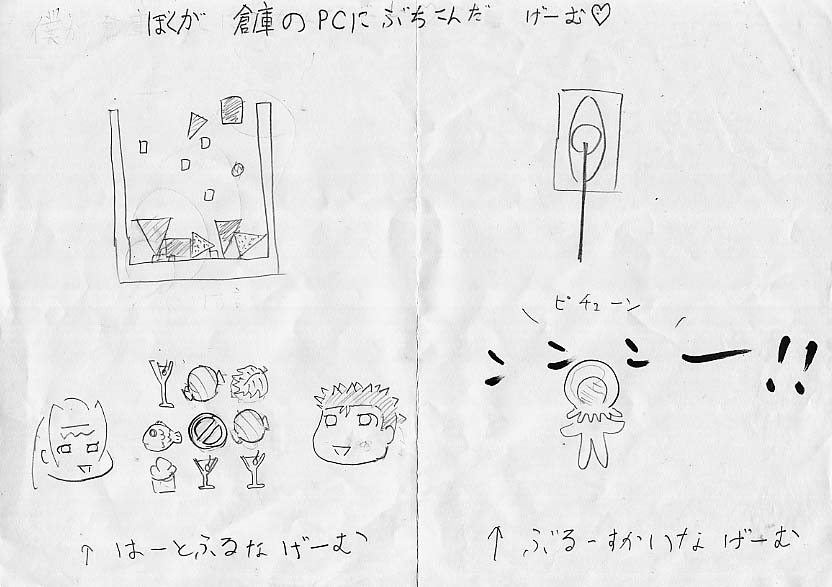 ぼくが 倉庫のPCに ぶちこんだ げーむ♡
ピチューン
ー!!
↑ はーとふるな げーむ
↑ ぶるーすかいな げーむ